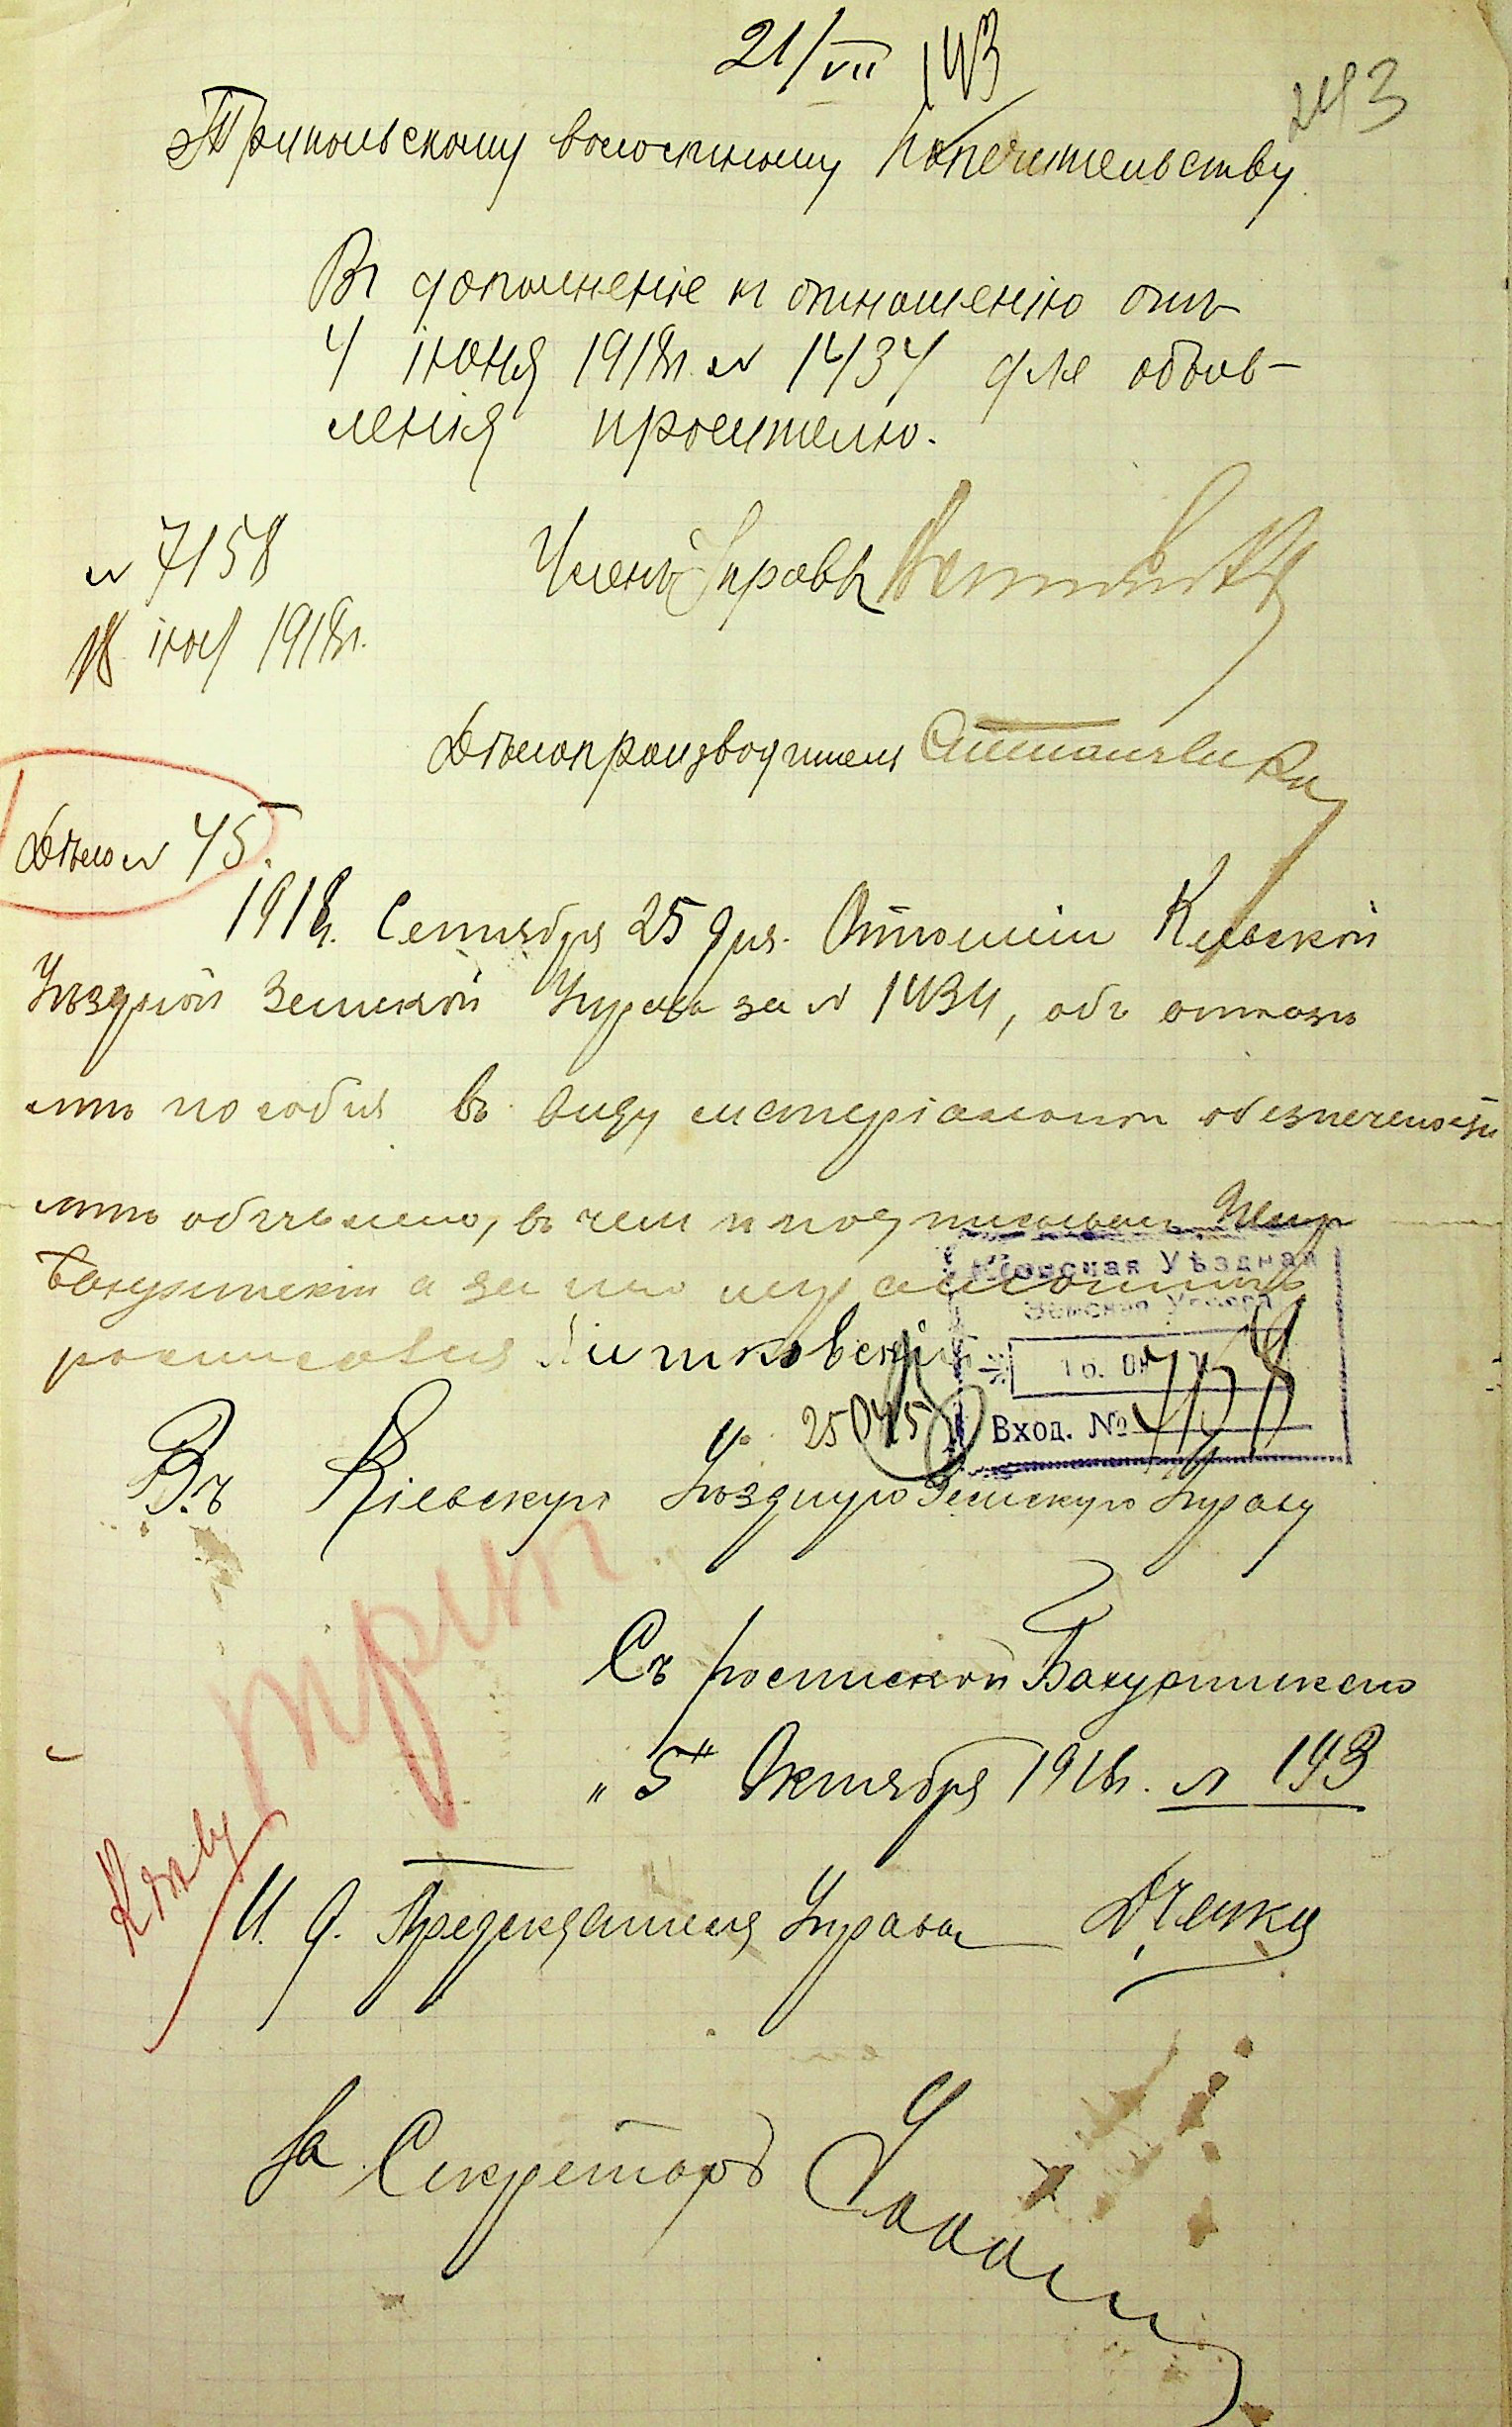 21/VII 143
243
Трипольскому волостному Попечительству
Въ дополненіе къ отношенію отъ
4 іюня 1918г. № 1434 для объяв-
ленія просителю.
№ 7158
Членъ Управы
18 іюл 1918г.
Дѣлопроизводитель
Дѣло № 45.
1918г. Сентября 25 дня. Отношеніи Кіевской
Уѣздной Земской Управы за № 1434, объ отказѣ
мнѣ пособія въ виду матеріальной обезпеченности
мнѣ объявлено, въ чем и подписываюсь
а за его неграмотнаго
росписался
Кіевская Уѣздная
Земская Управа
16. ОК
Вход. № 7158
25045
Въ Кіевскую Уѣздную Земскую Управу
Съ роспиской
„5" Октября 1918г. № 143
И. д. Предсѣдателя Управы
За Секретаря